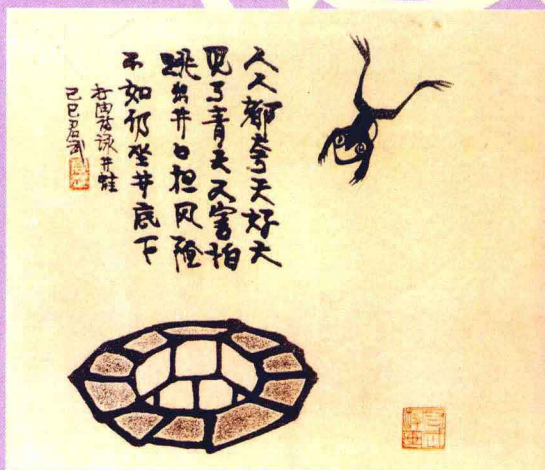 人人都夸天好大
见了青天又害怕
跳出井口担风险
不如仍坐井底下
井蛙
己巳君武